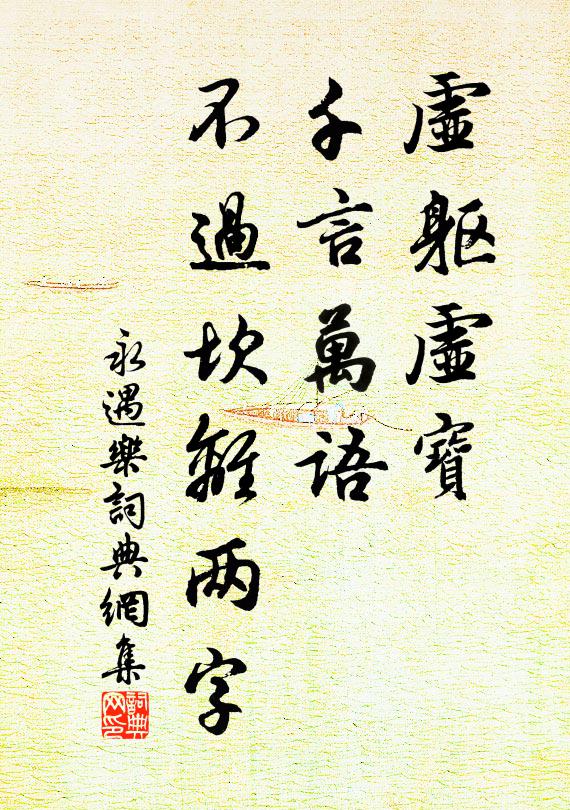 虛軀虛寶
千言萬語
不過坎離两字
永遇樂詞典網集
詞典网印